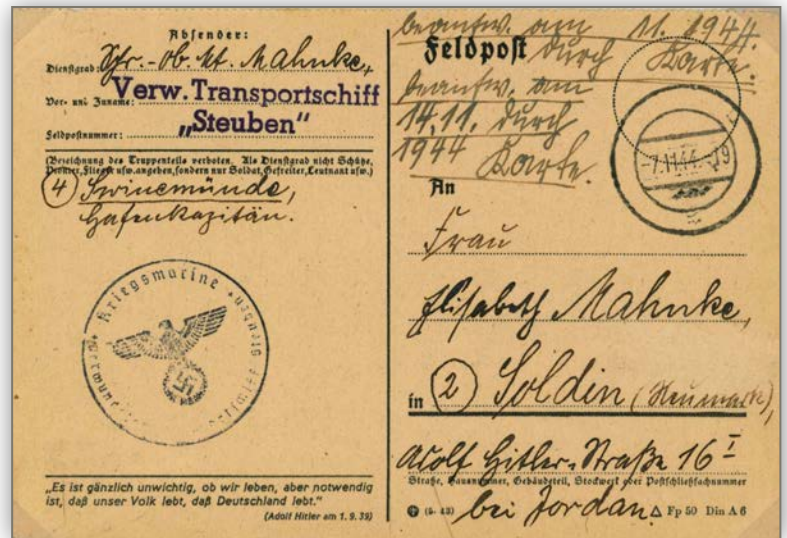 Absender:
Dienstgrad: Ob. Mt. Mahnke,
Vor- und Zuname: Verw. Transportschiff
„Steuben“
Feldpostnummer:
(Bezeichnung des Truppenteils verboten. Als Dienstgrad nicht Schütze,
Pionier, Flieger usw. angeben, sondern nur Soldat, Gefreiter, Leutnant usw.)
(4) Swinemünde,
Hafenkapitän.
Kriegsmarine
„Es ist gänzlich unwichtig, ob wir leben, aber notwendig
ist, daß unser Volk lebt, daß Deutschland lebt.“
(Adolf Hitler am 1. 9. 39)
beantw. am 11. 1944.
Feldpost durch Karte.
beantw. am
14.11. durch
1944 Karte.
-7.11.44.-19
An
Frau
Elisabeth Mahnke,
in (2) Soldin (Neumark),
Adolf Hitler-Straße 16 I
Straße, Hausnummer, Gebäudeteil, Stockwerk oder Postschließfachnummer
(5. 43) bei Jordan. Fp 50 Din A 6